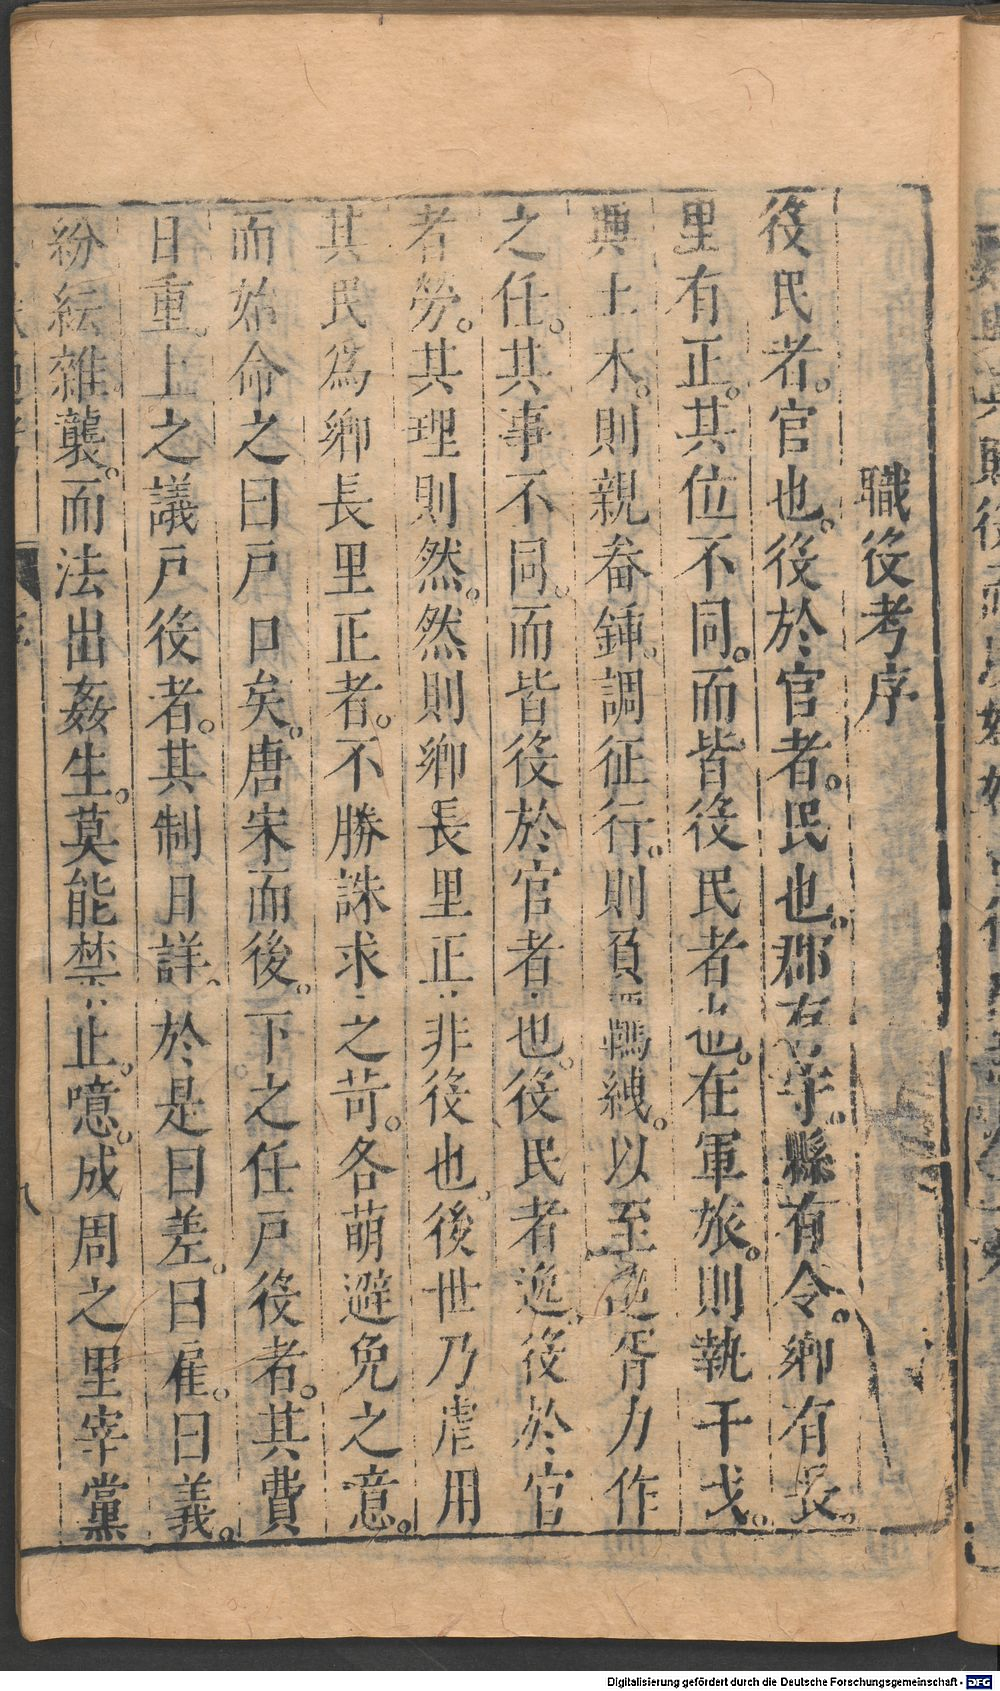 職役考序
役民者。官也。役於官者。民也。郡有守。縣有令。鄉有長。
里有正。其位不同。而皆役民者也。在軍旅。則執干戈。
興土木。則親畚鍤。調征行。則負羈紲。以至追胥力作
之任。其事不同。而皆役於官者也。役民者逸。役於官
者勞。其理則然。然則鄉長里正非役也。後世乃虐用
其民為鄉長里正者。不勝誅求之苛。各萌避免之意。
而始命之曰戶口矣。唐宋而後。下之任戶役者。其費
日重。上之議戶役者。其制日詳。於是曰差。曰雇。曰義。
紛紜雜襲。而法出姦生。莫能禁止。噫。成周之里宰黨
Digitalisierung gefördert durch die Deutsche Forschungsgemeinschaft - DFG